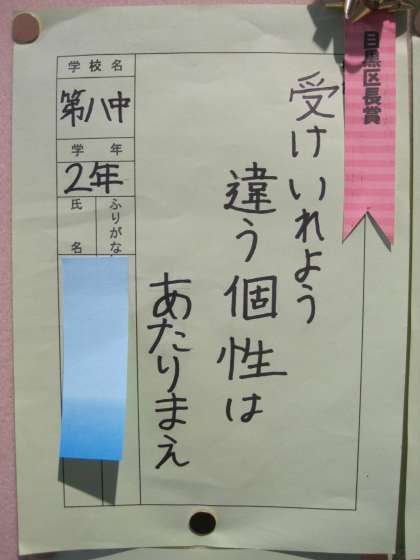 目黒区長賞
受けいれよう
違う個性は
あたりまえ
学校名
第八中
学年
2年
ふりがな
氏名